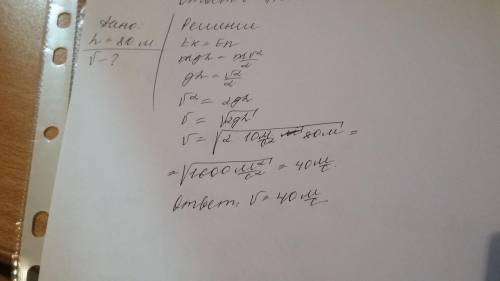 Дано:
h = 80 м
v - ?
Решение
Ек = Еп
mgh = mv²/2
gh = v²/2
v² = 2gh
v = √2gh
v = √2 10 м/с² 80 м =
= √1600 м²/с² = 40 м/с.
Ответ: v = 40 м/с